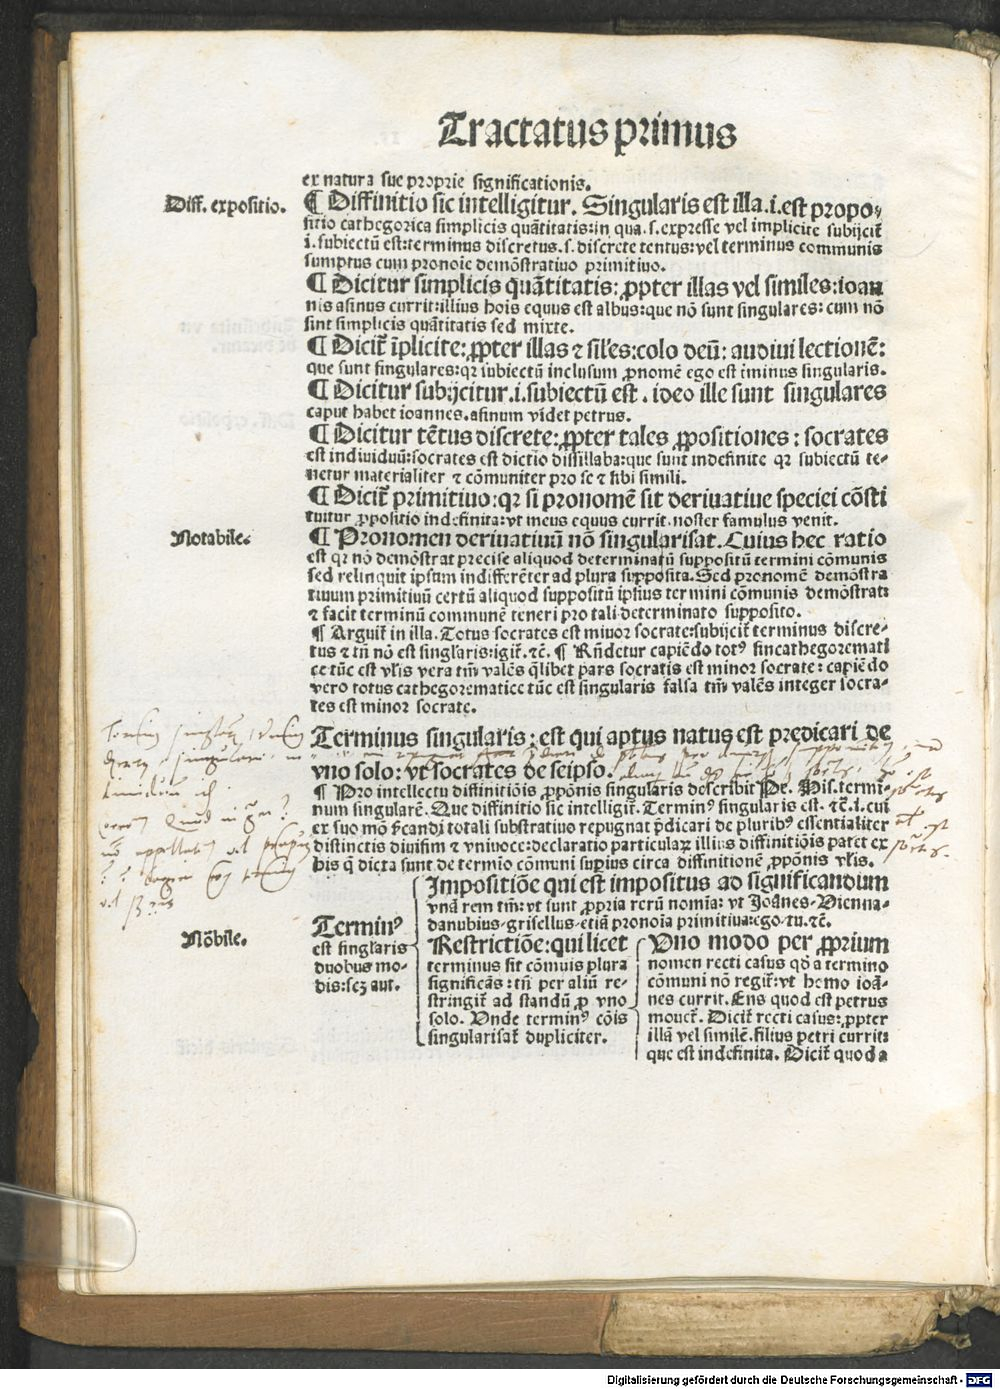 Tractatus primus
ex natura sue proprie significationis.
Diff. expositio.
¶ Diffinitio sic intelligitur. Singularis est illa.i.est propo⸗
sitio cathegorica simplicis quãtitatis:in qua.s.expresse vel implicite subijcit᷑
i.subiectũ est:terminus discretus.s.discrete tentus:vel terminus communis
sumptus cum pronoīe demõstratiuo primitiuo.
¶ Dicitur simplicis quãtitatis: ꝓpter illas vel similes:ioan
nis asinus currit:illius hoīs equus est albus:que nõ sunt singulares: cum nõ
sint simplicis quãtitatis sed mixte.
¶ Dicit᷑ īplicite: ꝓpter illas ⁊ siłes:colo deũ: audiui lectionē:
que sunt singulares:qꝛ subiectũ inclusum ꝓnomē ego est t̄minus singularis.
¶ Dicitur subijcitur.i.subiectũ est. ideo ille sunt singulares
caput habet ioannes.asinum videt petrus.
¶ Dicitur tētus discrete: ꝓpter tales ꝓpositiones: socrates
est indiuiduũ:socrates est dictio dissillaba:que sunt indefinite qꝛ subiectũ te-
netur materialiter ⁊ cõmuniter pro se ⁊ sibi simili.
¶ Dicit᷑ primitiuo:qꝛ si pronomē sit deriuatiue speciei cõsti
tuitur ꝓpositio indefinita:vt meus equus currit.noster famulus venit.
Notabile.
¶ Pronomen deriuatiuũ nõ singularisat. Cuius hec ratio
est qꝛ nõ demõstrat precise aliquod determinatũ suppositũ termini cõmunis
sed relinquit ipsum indifferēter ad plura supposita. Sed pronomē demõstra
tiuum primitiuũ certũ aliquod suppositũ ipsius termini cõmunis demõstrat:
⁊ facit terminũ communē teneri pro tali determinato supposito.
¶ Arguit᷑ in illa. Totus socrates est minor socrate:subijcit᷑ terminus discre-
tus ⁊ tñ nõ est singłaris:igit᷑.⁊c̄. ¶ Rñdetur capiēdo totꝰ sincathegoremati
ce tūc est vłis vera tm̄ valēs q̄libet pars socratis est minor socrate: capiēdo
vero totus cathegorematice tūc est singularis falsa tm̄ valēs integer socra-
tes est minor socrate.
Terminus singularis: est qui aptus natus est predicari de
vno solo: vt socrates de seipso.
¶ Pro intellectu diffinitiõis ꝓpõnis singularis describit Pe. His. termi-
num singularē. Que diffinitio sic intelligit᷑. Terminꝰ singularis est. ⁊c̄.i.cui
ex suo mõ p̄candi totali substratiuo repugnat p̄dicari de pluribꝰ essentialiter
distinctis diuisim ⁊ vniuoce:declaratio particularꝝ illius diffinitiõis patet ex
his q̄ dicta sunt de termīo cõmuni supius circa diffinitionē ꝓpõnis vłis.
Nõbile.
Terminꝰ
est singłaris
duobus mo-
dis:scꝫ aut.
Impositiõe qui est impositus ad significandum
vnā rem tm̄: vt sunt ꝓpria rerũ nomīa: vt Joānes-Vienna-
danubius-grisellus-etiā pronoīa primitiua:ego-tu.⁊c̄.
Restrictiõe:qui licet
terminus sit cõmuīs plura
significās: tñ per aliũ re-
stringit᷑ ad standũ ꝓ vno
solo. Unde terminꝰ cõīs
singularisat᷑ dupliciter.
Uno modo per ꝓprium
nomen recti casus qð a termino
cõmuni nõ regit᷑:vt homo ioā-
nes currit. Ens quod est petrus
mouet᷑. Dicit᷑ recti casus:ꝓpter
illā vel similē.filius petri currit:
que est indefinita. Dicit᷑ quod a
Digitalisierung gefördert durch die Deutsche Forschungsgemeinschaft - DFG